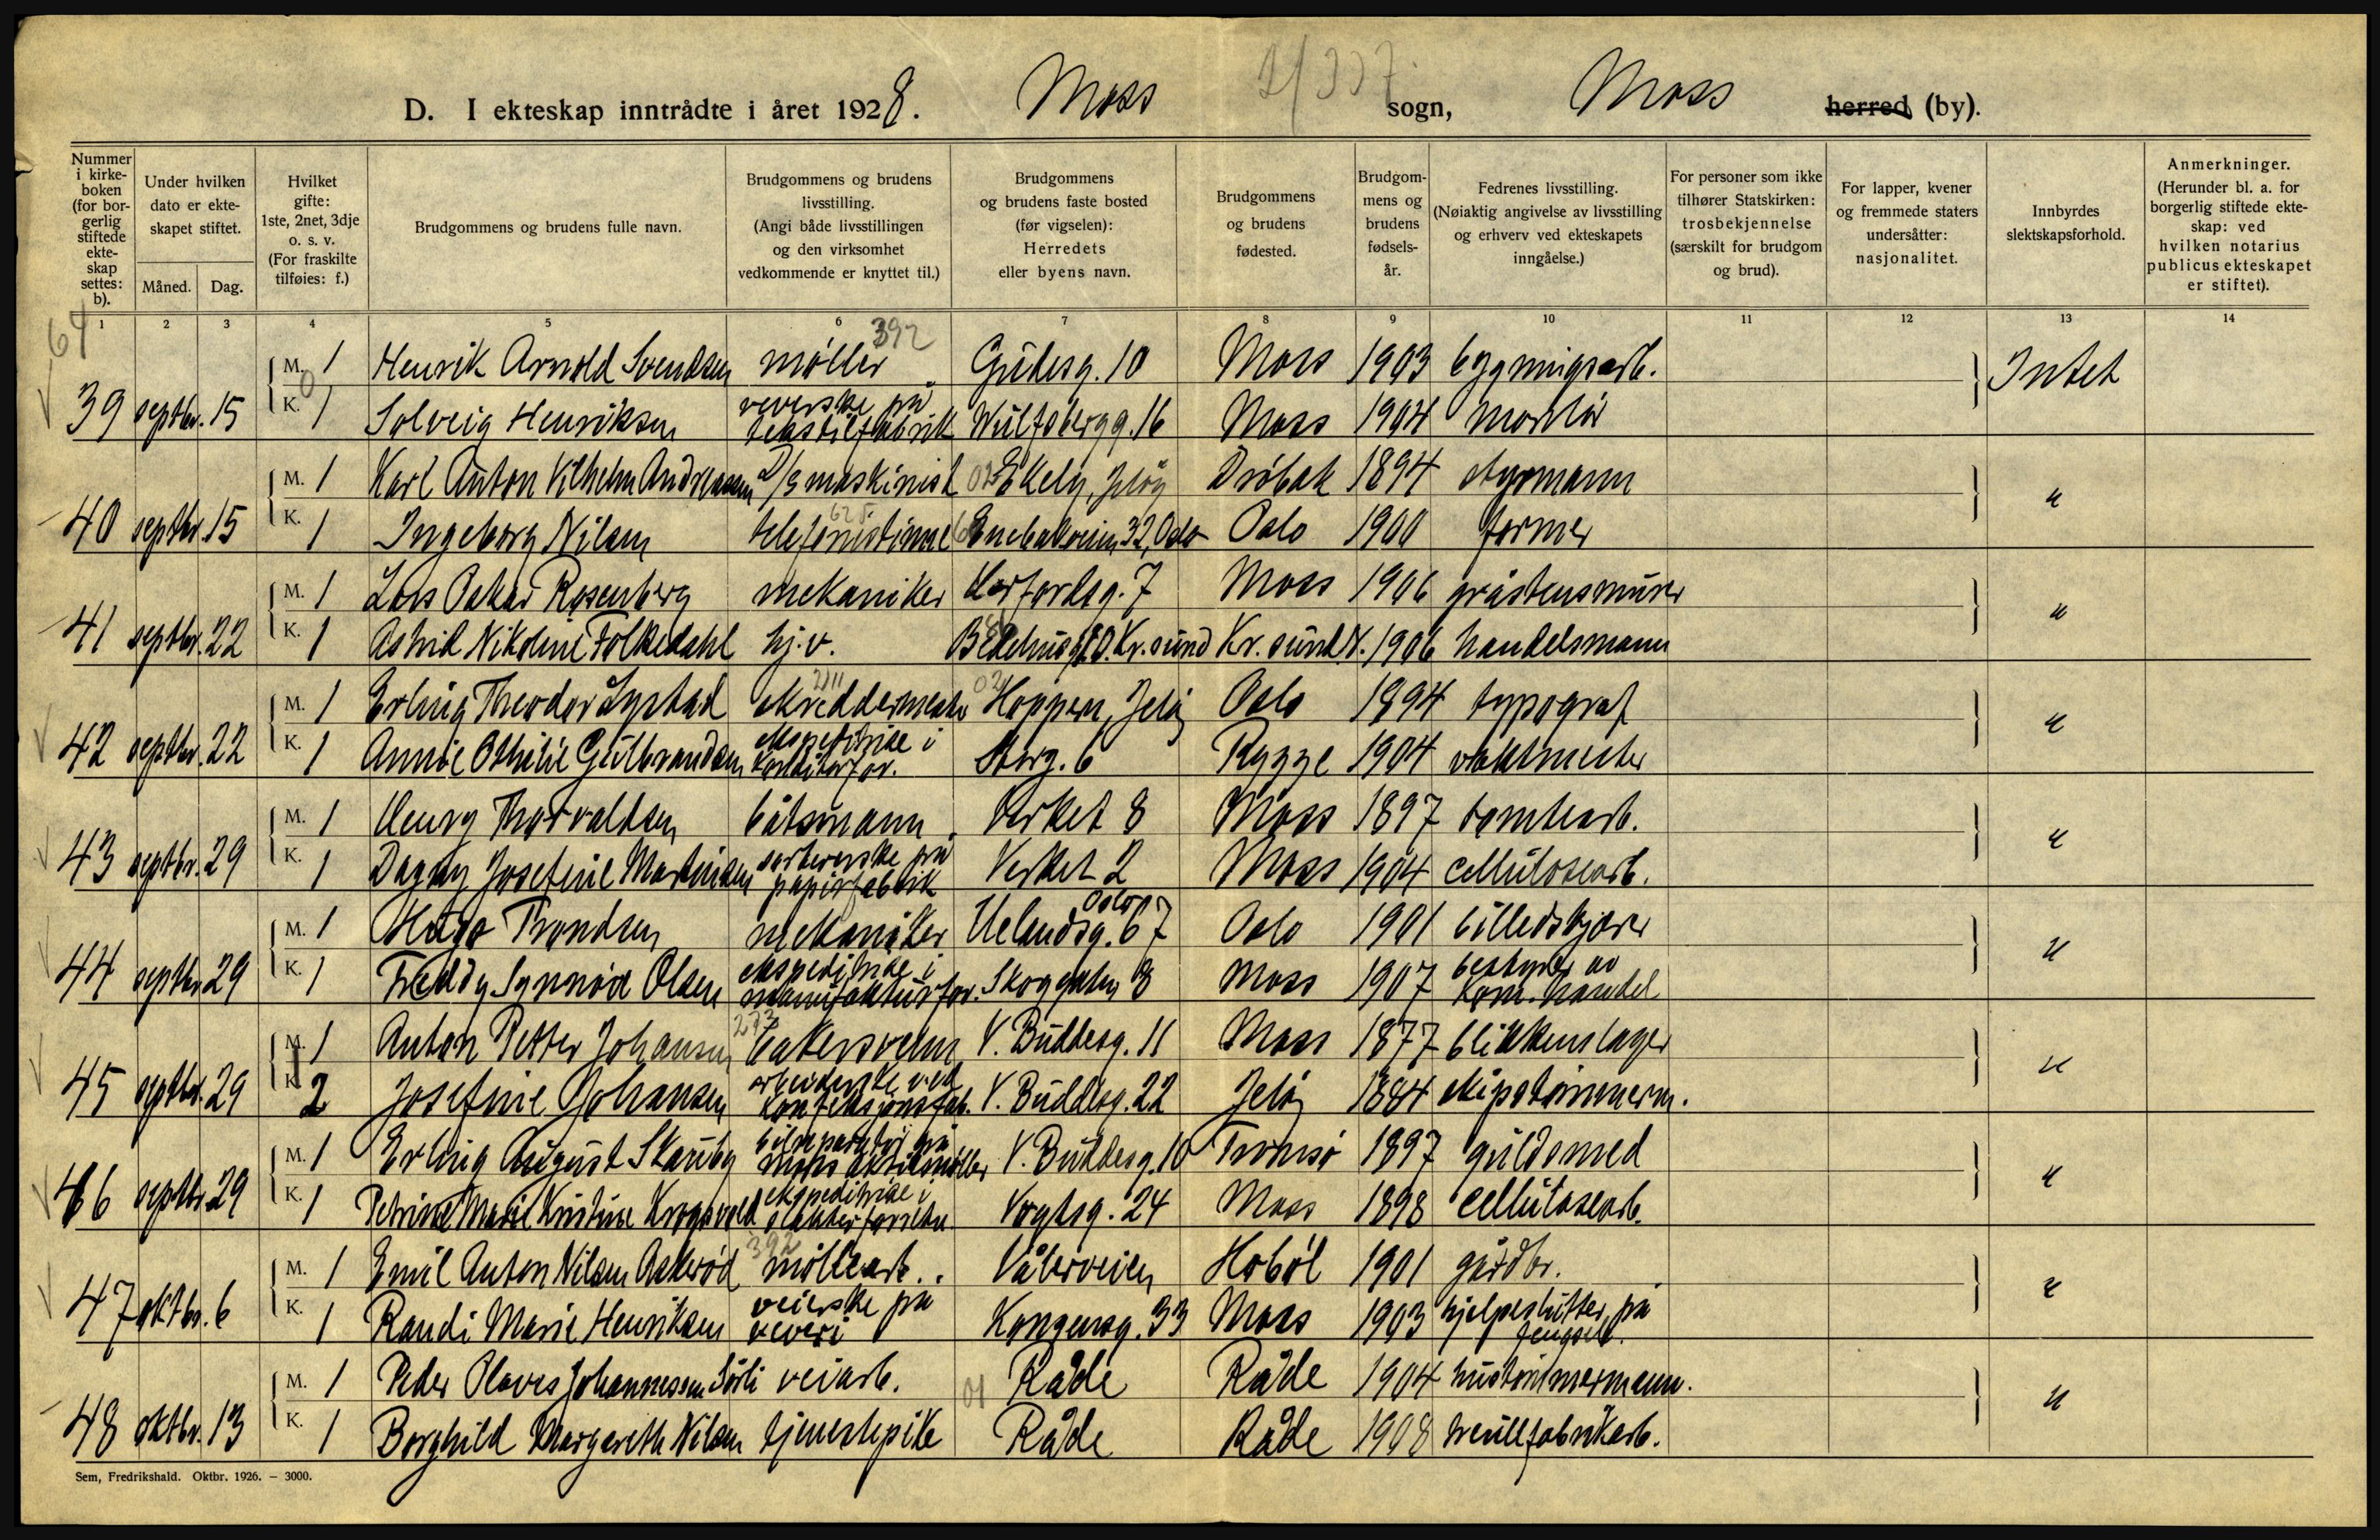 D. I ekteskap inntrådte i året 1928. Moss sogn, Moss herred (by).
Nummer i kirkeboken (for borgerlig stiftede ekteskap settes: b).
Under hvilken dato er ekteskapet stiftet.
Måned. Dag.
Hvilket gifte: 1ste, 2net, 3dje o. s. v. (For fraskilte tilføies: f.)
Brudgommens og brudens fulle navn.
Brudgommens og brudens livsstilling. (Angi både livsstillingen og den virksomhet vedkommende er knyttet til.)
Brudgommens og brudens faste bosted (før vigselen): Herredets eller byens navn.
Brudgommens og brudens fødested.
Brudgommens og brudens fødselsår.
Fedrenes livsstilling. (Nøiaktig angivelse av livsstilling og erhverv ved ekteskapets inngåelse.)
For personer som ikke tilhører Statskirken: trosbekjennelse (særskilt for brudgom og brud).
For lapper, kvener og fremmede staters undersåtter: nasjonalitet.
Innbyrdes slektskapsforhold.
Anmerkninger. (Herunder bl. a. for borgerlig stiftede ekteskap: ved hvilken notarius publicus ekteskapet er stiftet).
1 2 3 4 5 6 7 8 9 10 11 12 13 14
64 392
M. 1 Henrik Arnold Svendsen møller Gudesg. 10 Moss 1903 bygningsarb. Intet
39 septbr. 15 K. 1 Solveig Henriksen veverske på tekstilfabrik Wulfsbergg. 16 Moss 1904 montør
M. 1 Karl Anton Vilhelm Andreassen D/S maskinist Ekely, Jeløy Drøbak 1894 styrmann "
40 septbr. 15 K. 1 Ingeborg Nilsen telefonistinne Enebakveien 32, Oslo Oslo 1900 former
M. 1 Lars Oskar Rosenberg mekaniker 7 Moss 1906 gråstensmurer "
41 septbr. 22 K. 1 Astrid Nikoline Folkedahl hj.v. Kr.sund Kr.sund N. 1906 handelsmann
M. 1 Erling Theodor Lystad skreddermester Hoppern, Jeløy Oslo 1894 typograf "
42 septbr. 22 K. 1 Annie Othilie Gulbrandsen ekspeditrise i konditorfor. Storg. 6 Rygge 1904 vaktmester
M. 1 Henry Thorvaldsen båtsmann Verket 8 Moss 1897 tomtearb. "
43 septbr. 29 K. 1 Dagny Josefine Martinsen sorterske på papirfabrik Verket 2 Moss 1904 cellulosearb.
M. 1 Hugo Trondsen mekaniker Uelandsg. 67 Oslo Oslo 1901 billedskjærer "
44 septbr. 29 K. 1 Freddy Synnøve Olsen ekspeditrise i manufakturfor. Skoggaten 8 Moss 1907 bestyrer av kom. handel
M. 1 Anton Petter Johansen bakersvenn V. Buddesg. 11 Moss 1877 blikkenslager "
45 septbr. 29 K. 2 Josefine Johansen arbeiderske ved konfeksjonsfab. V. Buddesg. 22 Jeløy 1884 skipstømmerm.
M. 1 Erling August Skauby bilreparatør på Moss aktiemøller V. Buddesg. 10 Tromsø 1897 gullsmed "
46 septbr. 29 K. 1 Petrine Marie Kristine Krogsvold ekspeditrise i slakterforretn. Vogtsg. 24 Moss 1898 cellulosearb.
M. 1 Emil Anton Nilsen Askerød møllearb. Vålerveien Hobøl 1901 gårdbr. "
47 oktbr. 6 K. 1 Randi Marie Henriksen veverske på veveri Kongensg. 33 Moss 1903 hjelpeslutter på fengsel.
M. 1 Peder Olaves Johannessen Sørli veiarb. Råde Råde 1904 hustømmermann. "
48 oktbr. 13 K. 1 Borghild Margareth Nilsen tjenestepike Råde Råde 1908 treullfabrikarb.
Sem, Fredrikshald. Oktbr. 1926. – 3000.